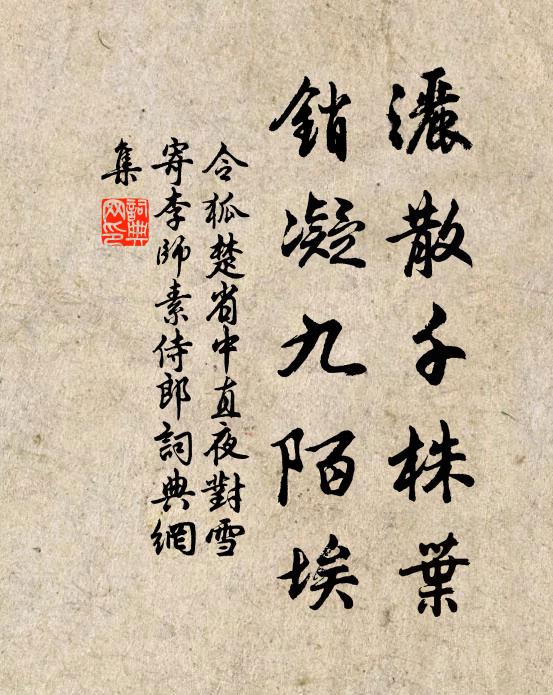 灑散千株葉
銷凝九陌埃
令狐楚省中直夜對雪
寄李師素侍郎詞典網
集
詞典
网印